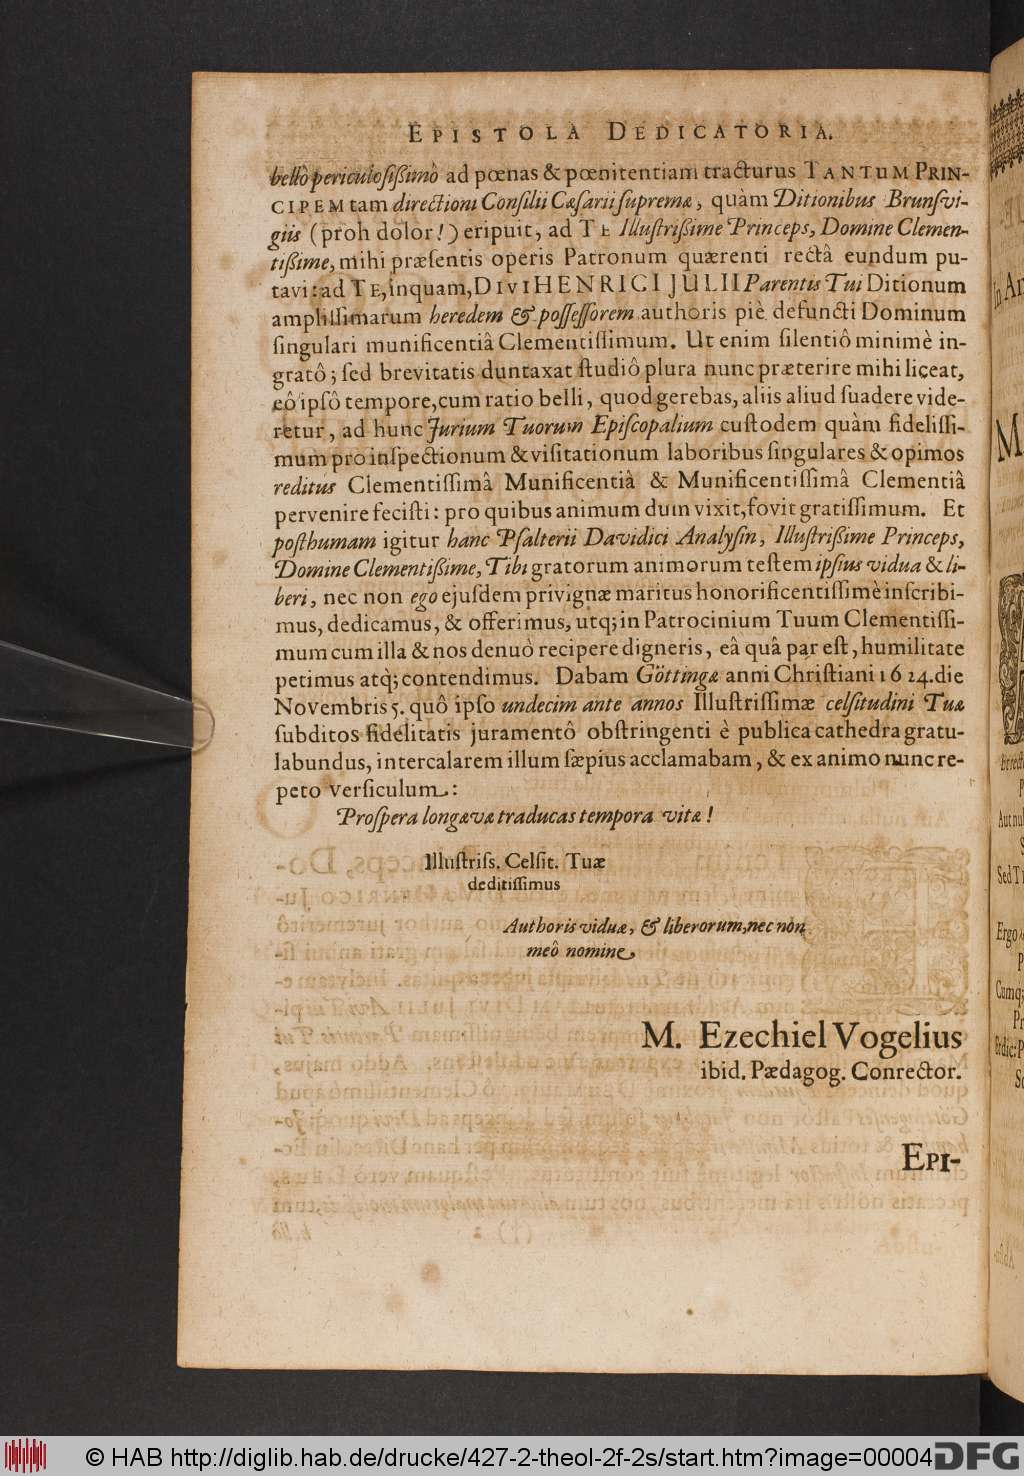 EPISTOLA DEDICATORIA.
bellô periculosißimô ad pœnas & pœnitentiam tracturus TANTUM PRIN-
CIPEM tam directioni Consilii Cæsarii supremæ, quàm Ditionibus Brunsvi-
giis (proh dolor!) eripuit, ad TE Illustrißime Princeps, Domine Clemen-
tißime, mihi præsentis operis Patronum quærenti rectâ eundum pu-
tavi: ad TE, inquam, DIVI HENRICI JULII Parentis Tui Ditionum
amplissimarum heredem & possessorem authoris piè defuncti Dominum
singulari munificentiâ Clementissimum. Ut enim silentiô minimè in-
gratô; sed brevitatis duntaxat studiô plura nunc præterire mihi liceat,
eô ipsô tempore, cum ratio belli, quod gerebas, aliis aliud suadere vide-
retur, ad hunc Jurium Tuorum Episcopalium custodem quàm fidelissi-
mum pro inspectionum & visitationum laboribus singulares & opimos
reditus Clementissimâ Munificentiâ & Munificentissimâ Clementiâ
pervenire fecisti: pro quibus animum dum vixit, fovit gratissimum. Et
posthumam igitur hanc Psalterii Davidici Analysin, Illustrißime Princeps,
Domine Clementißime, Tibi gratorum animorum testem ipsius vidua & li-
beri, nec non ego ejusdem privignæ maritus honorificentissimè inscribi-
mus, dedicamus, & offerimus, utq; in Patrocinium Tuum Clementissi-
mum cum illa & nos denuò recipere digneris, eâ quâ par est, humilitate
petimus atq; contendimus. Dabam Göttingæ anni Christiani 1624. die
Novembris 5. quô ipso undecim ante annos Illustrissimæ celsitudini Tuæ
subditos fidelitatis juramentô obstringenti è publica cathedra gratu-
labundus, intercalarem illum sæpius acclamabam, & ex animo nunc re-
peto versiculum:
Prospera longævæ traducas tempora vitæ!
Illustriss. Celsit. Tuæ
deditissimus
Authoris viduæ, & liberorum, nec non
meô nomine
M. Ezechiel Vogelius
ibid. Pædagog. Conrector.
EPI-
© HAB http://diglib.hab.de/drucke/427-2-theol-2f-2s/start.htm?image=00004
DFG